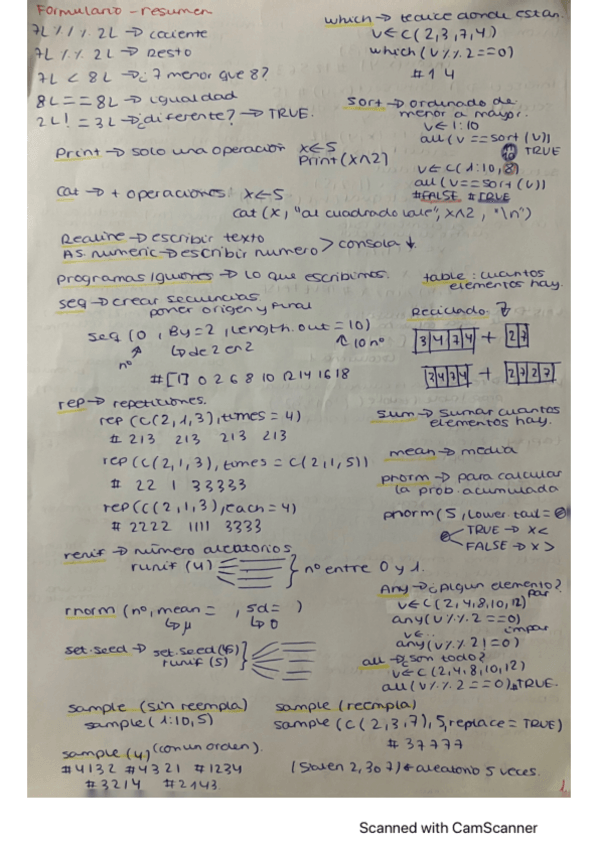 Formulario - resumen
7L %/% 2L → cociente
7L %% 2L → Resto
7L < 8L → ¿7 menor que 8?
8L == 8L → igualdad
2L != 3L → ¿diferente? → TRUE.
Print → solo una operación x←5
Print(x^2)
Cat → + operaciones: x←5
cat (x, "al cuadrado vale", x^2, "\n")
Readline → escribir texto
As.numeric → escribir numero > consola ↓.
Programas iguones → lo que escribimos.
seq → crear secuencias
poner origen y final
seq (0, By=2, length.out = 10)
nº ↳ de 2 en 2 10 nº
#[1] 0 2 6 8 10 12 14 16 18
rep → repeticiones.
rep (c(2,1,3), times = 4)
# 213 213 213 213
rep (c(2,1,3), times = c(2,1,5))
# 22 1 33333
rep (c(2,1,3), each = 4)
# 2222 1111 3333
renif → número aleatorios
runif (4) } nº entre 0 y 1.
rnorm (nº, mean = , sd = )
↳ μ ↳ σ
set.seed → set.seed(45)
runif (5)
sample (sin reempla)
sample (1:10, 5)
sample (4) (con un orden).
#4132 #4321 #1234
#3214 #2143
which → te dice donde están.
v←c(2,3,7,4)
which (v%%2==0)
# 1 4
sort → ordenado de
menor a mayor.
v←1:10
all (v == sort (v))
# TRUE
v←c(1:10,8)
all (v==sort(v))
#FALSE #TRUE
table: cuantos
elementos hay.
Reciclado.
3 4 7 4 + 2 7
3 4 7 4 + 2 7 2 7
sum → sumar cuantos
elementos hay.
mean → media
pnorm → para calcular
la prob. acumulada
pnorm (5, lower.tail =
TRUE → x<
FALSE → x>
Any → ¿Algun elemento?
par
v←c(2,4,8,10,12)
any(v%%2==0)
v←.. impar
any (v%%2!=0)
all → ¿son todo?
v←c(2,4,8,10,12)
all (v%%2==0) → TRUE.
sample (reempla)
sample (c(2,3,7), 5, replace = TRUE)
# 37777
(Salen 2, 3 o 7) ← aleatorio 5 veces.
1
Scanned with CamScanner